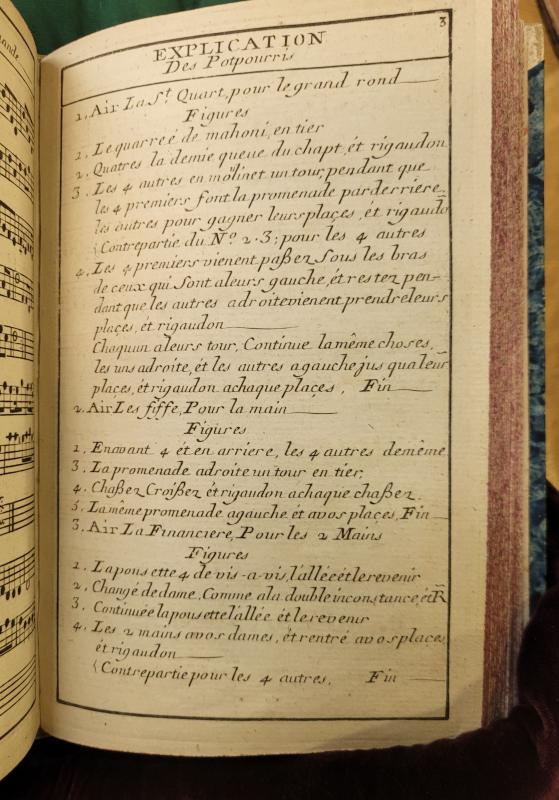 3
EXPLICATION
Des Potpourris
1. Air La S.t Quart, pour le grand rond
Figures
1. Le quarreé de mahoni, en tier
2. Quatres la demie queue du chapt, ét rigaudon
3. Les 4 autres en molinet un tour, pendant que
les 4 premiers font la promenade par derriere.
les autres pour gagner leurs plaçes, ét rigaudō
(Contrepartie du N.o 2.3; pour les 4 autres
4. Les 4 premiers vienent paßez sous les bras
de ceux qui sont aleurs gauche, ét restez pen-
dant que les autres adroite vienent prendre leurs
plaçes, ét rigaudon
Chaquun aleurs tour, Continue la même choses,
les uns adroite, ét les autres agauche jus qua leur
plaçes, ét rigaudon achaque plaçes, Fin
2. Air Les fiffe, Pour la main
Figures
1. En avant 4 ét en arriere, les 4 autres demême
3. La promenade adroite un tour en tier,
4. Chaßez Croißez ét rigaudon achaque chaßez
5. La même promenade agauche ét avos plaçes, Fin
3. Air La Financiere, Pour les 2 Mains
Figures
1. La pousette 4 de vis-a-vis, l'allée ét le revenir
2. Changé de dame, Comme ala double inconstance, ét R
3. Continuée la pousette l'allée ét le revenir
4. Les 2 mains avos dames, ét rentré avos plaçes
ét rigaudon
(Contrepartie pour les 4 autres, Fin